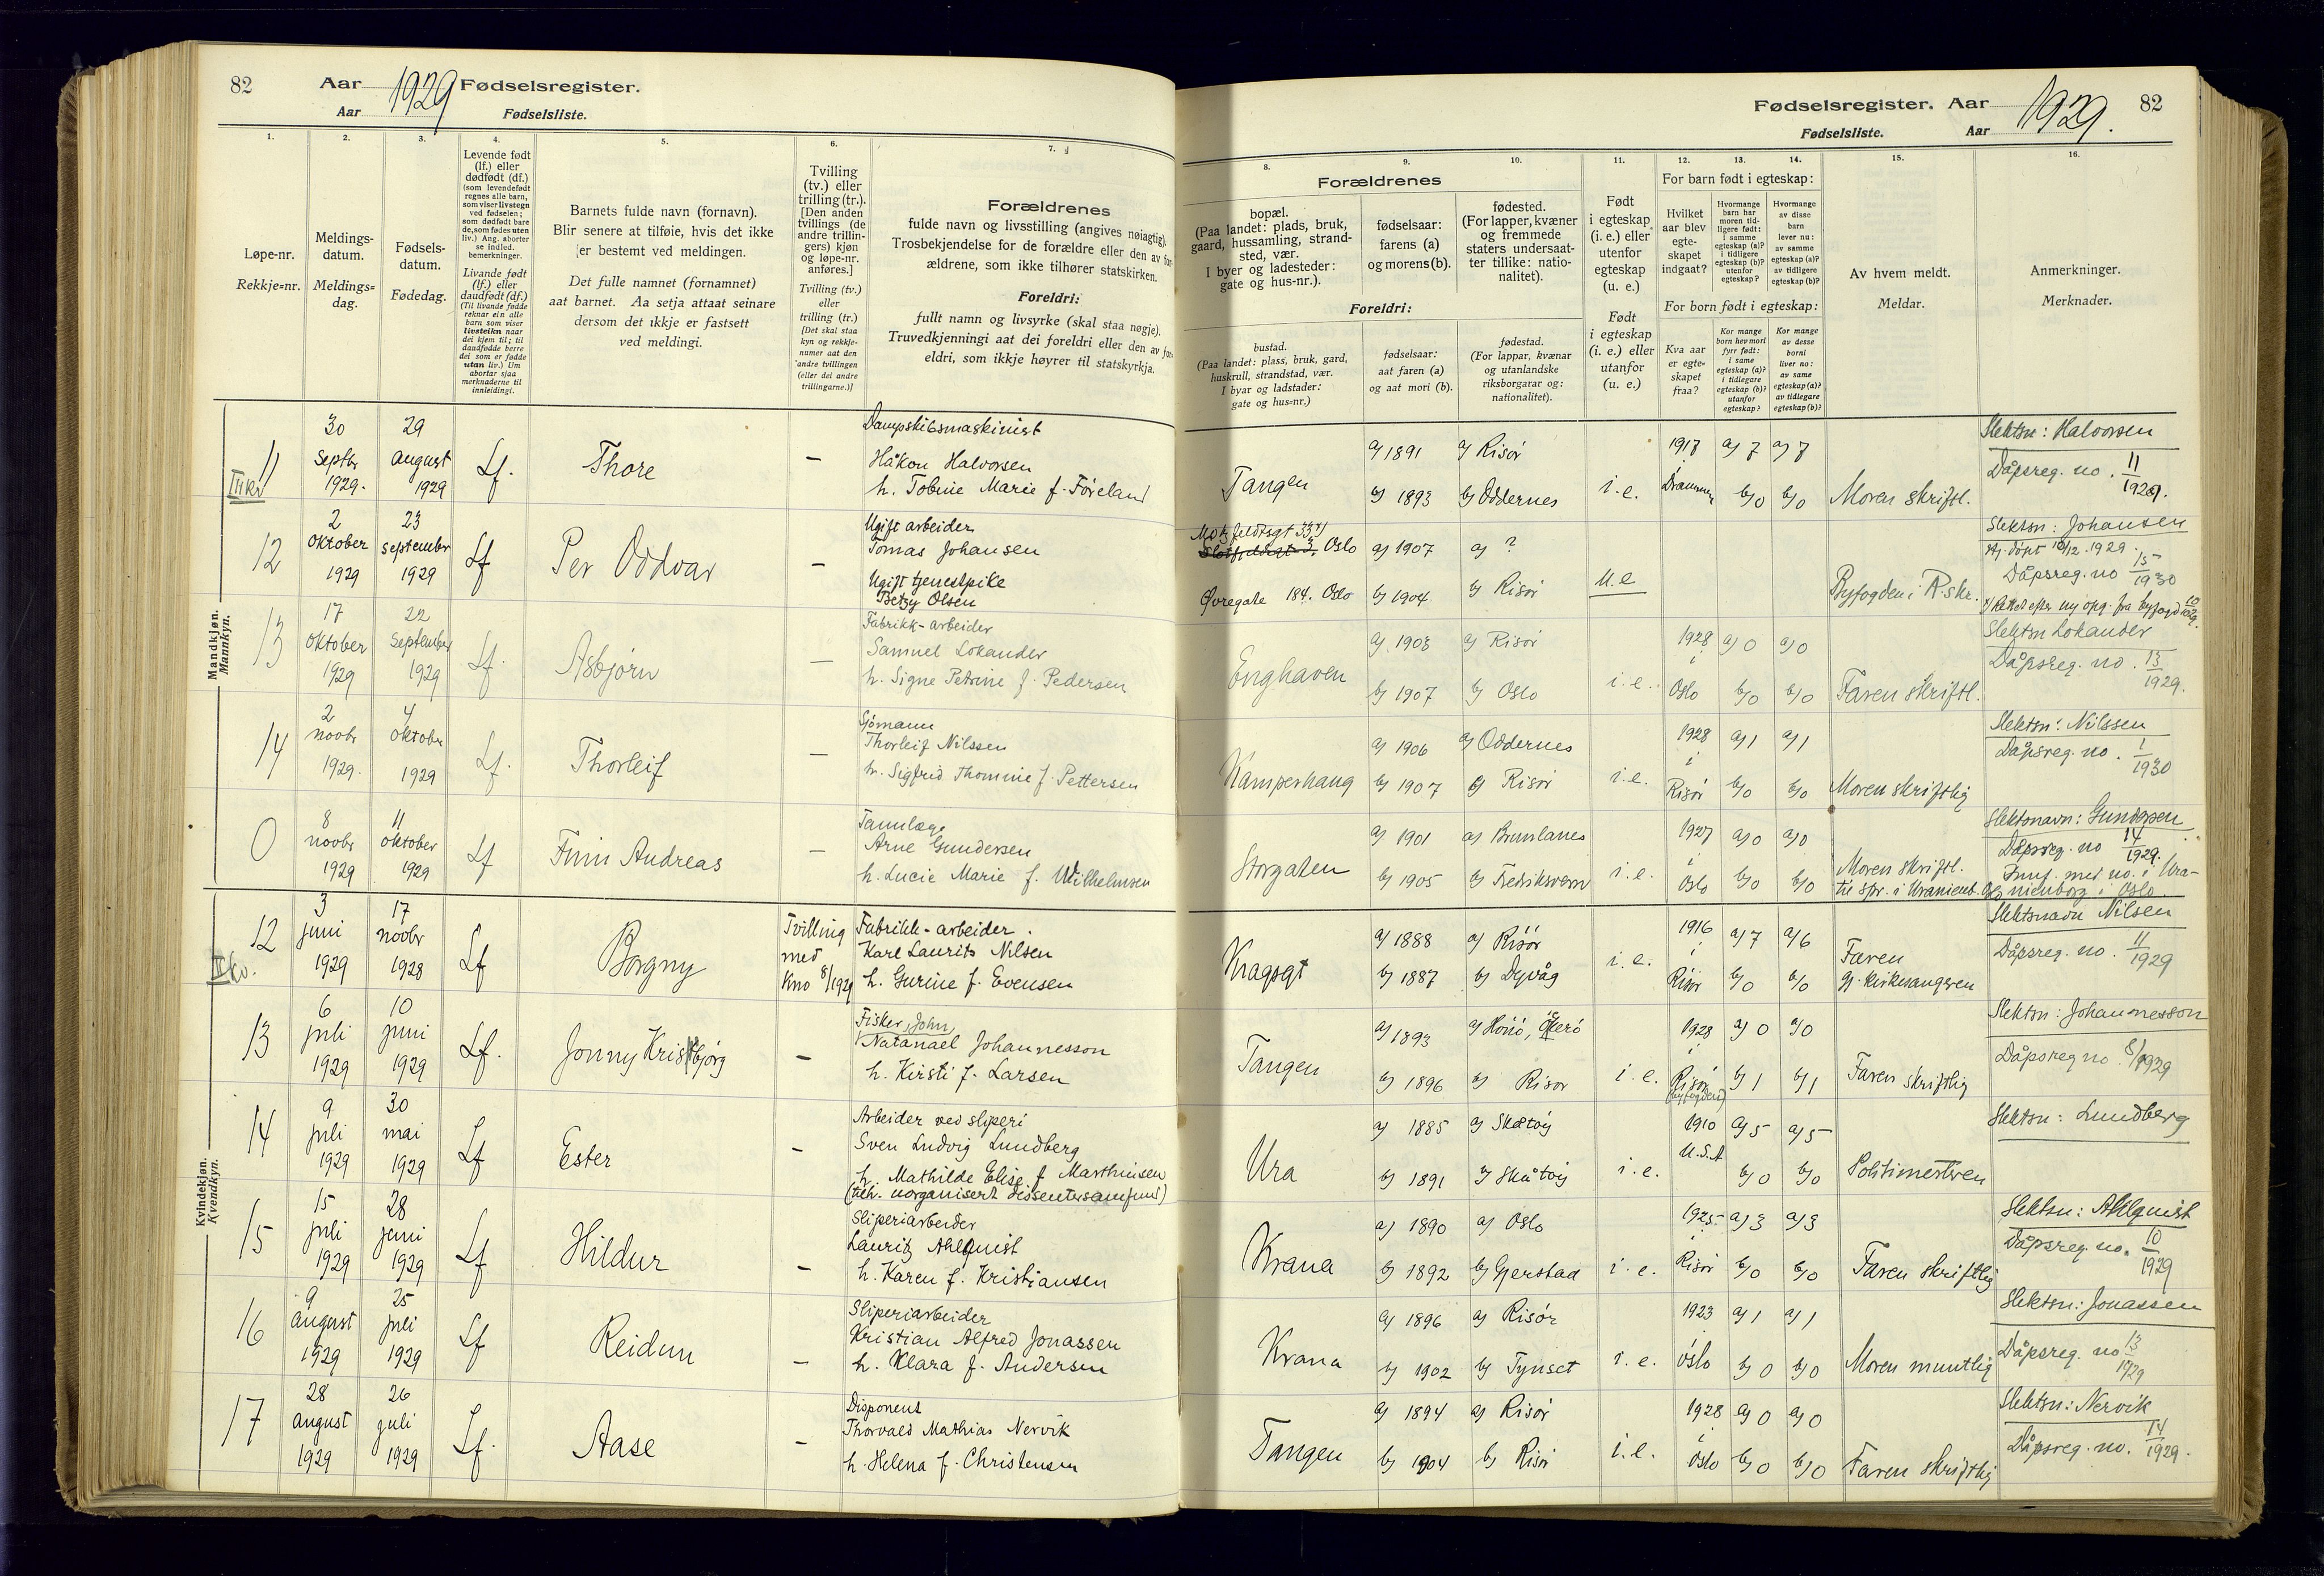 82 Aar 1929 Fødselsregister.
Aar Fødselsliste.
1. 2. 3. 4. 5. 6. 7.
Løpe-nr.
Rekkje=nr.
Meldings-
datum.
Meldings=
dag.
Fødsels-
datum.
Fødedag.
Levende født
(lf.) eller
dødfødt (df.)
(som levendefødt
regnes alle barn,
som viser livstegn
ved fødselen;
som dødfødt bare
de, som fødes uten
liv.) Ang. aborter
se indled.
bemerkninger.
Livande født
(lf.) eller
daudfødt (df.)
(Til livande fødde
reknar ein alle
barn som viser
livsteikn naar
dei kjem til; til
daudfødde berre
dei som er fødde
utan liv.) Um
abortar sjaa
merknaderne til
innleidingi.
Barnets fulde navn (fornavn).
Blir senere at tilføie, hvis det ikke
er bestemt ved meldingen.
Det fulle namnet (fornamnet)
aat barnet. Aa setja attaat seinare
dersom det ikkje er fastsett
ved meldingi.
Tvilling
(tv.) eller
trilling (tr.).
[Den anden
tvillings (de
andre trillin-
gers) kjøn
og løpe-nr.
anføres.]
Tvilling (tv.)
eller
trilling (tr.)
[Det skal staa
kyn og rekkje-
numer aat den
andre tvillingen
(eller dei andre
trillingarne.)]
Forældrenes
fulde navn og livsstilling (angives nøiagtig).
Trosbekjendelse for de forældre eller den av for-
ældrene, som ikke tilhører statskirken.
Foreldri:
fullt namn og livsyrke (skal staa nøgje).
Truvedkjenningi aat dei foreldri eller den av for-
eldri, som ikkje høyrer til statskyrkja.
Mandkjøn.
Mannkyn.
11 30 Septbr 1929. 29 august 1929 Lf. Thore —
Dampskibsmaskinist
Håkon Halvorsen
h. Tobine Marie f. Føreland
12 2 oktober 1929 23 september 1929 Lf Per Oddvar —
Ugift arbeider
Tomas Johansen
Ugift tjenestpike
Betzy Olsen
13 17 oktober 1929 22 september 1929 Lf. Asbjørn —
Fabrikk-arbeider
Samuel Lokander
h. Signe Petrine f. Pedersen
14 2 novbr 1929. 4 oktober 1929 Lf. Thorleif —
Sjømann
Thorleif Nilssen
h. Sigfrid Thommine f. Pettersen
0 8 novbr 1929 11 oktober 1929 Lf Finn Andreas —
Tannlæge
Arne Gundersen
h. Lucie Marie f. Wilhelmsen
Kvindekjøn.
Kvendkyn.
12 3 juni 1929 17 novbr 1928 Lf Borgny Tvilling med Kno 8/1929
Fabrikk-arbeider.
Karl Laurits Nilsen
h. Gurine f. Evensen
13 6 juli 1929 10 juni 1929 Lf. Jonny Kristbjørg —
Fisker, John
Natanael Johannesson
h. Kirsti f. Larsen
14 9 juli 1929 30 mai 1929 Lf Ester —
Arbeider ved sliperi
Sven Ludvig Lundberg
h. Mathilde Elise f. Marthinsen
(tilh. uorganisert dissentersamfund)
15 15 juli 1929 28 juni 1929 Lf Hildur —
Sliperiarbeider
Lauritz Ahlquist
h. Karen f. Kristiansen
16 9 august 1929 25 juli 1929 Lf Reidun —
Sliperiarbeider
Kristian Alfred Jonassen
h. Klara f. Andersen
17 28 august 1929 26 juli 1929 Lf. Aase —
Disponent
Thorvald Mathias Nervik
h. Helena f. Christensen
Fødselsregister. Aar 1929. 82
Fødselsliste. Aar
8. 9. 10. 11. 12. 13. 14. 15. 16.
Forældrenes
bopæl.
(Paa landet: plads, bruk,
gaard, hussamling, strand-
sted, vær.
I byer og ladesteder:
gate og hus-nr.).
fødselsaar:
farens (a)
og morens (b).
fødested.
(For lapper, kvæner
og fremmede
staters undersaat-
ter tillike: natio-
nalitet).
Foreldri:
bustad.
(Paa landet: plass, bruk, gard,
huskrull, strandstad, vær.
I byar og ladstader:
gate og hus=nr.)
fødselsaar:
aat faren (a)
og aat mori (b).
fødestad.
(For lappar, kvænar
og utanlandske
riksborgarar og:
nationalitet).
Født
i egteskap
(i. e.) eller
utenfor
egteskap
(u. e.)
Født
i egteskap
(i. e.) eller
utanfor
(u. e.)
For barn født i egteskap:
Hvilket
aar blev
egte-
skapet
indgaat?
Hvormange
barn har
moren tid-
ligere født:
i samme
egteskap (a)?
i tidligere
egteskap (b)?
utenfor
egteskap?
Hvormange
av disse
barn
lever nu:
av samme
egteskap (a)?
av tidligere
egteskap (b)?
For born født i egteskap:
Kva aar
er egte-
skapet
fraa?
Kor mange
born hev mori
fyrr født:
i same
egteskap (a)?
i tidlegare
egteskap (b)?
utanfor
egteskap?
Kor mange
av desse
borni
liver no:
av same
egteskap (a)?
av tidlegare
egteskap (b)?
Av hvem meldt.
Meldar.
Anmerkninger.
Merknader.
Tangen a) 1891 a) Risør 1917 i Drammen a) 7 a) 7
b) 1893 b) Oddernes i. e. b) 0 b) 0 Moren skriftl.
Slektsn: Halvorsen
Dåpsreg. no. 11/1929.
Oslo a) 1907 a) ?
Øvregate 184. Oslo b) 1904 b) Risør u. e Byfogden i R. skr.
Slektsn: Johansen
Dåpsreg. no 15/1930
Enghaven a) 1908 a) Risør 1928 i Oslo a) 0 a) 0
b) 1907 b) Oslo i. e. b) 0 b) 0 Faren skriftl.
Slektsn Lokander
Dåpsreg. no. 13/1929.
Kamperhaug a) 1906 a) Oddernes 1928 i Risør a) 1 a) 1
b) 1907 b) Risør i. e. b) 0 b) 0 Moren skriftlig
Slektsn: Nilssen
Dåpsreg. no. 1/1930
Storgaten a) 1901 a) Brunlanes 1927 i Oslo a) 0 a) 0
b) 1905 b) Fredriksvern i. e. b) 0 b) 0 Moren skriftl.
til spr. i Uranienb. Oslo
Slektsnavn: Gundersen
Dåpsreg. no 14/1929.
Innf. med no. i Ura-
nienborg i Oslo.
Kragsgt a) 1888 a) Risør 1916 i Risør a) 7 a) 6
b) 1887 b) Dyvåg i. e. b) 0 b) 0 Faren
gj. kirkesangeren
Slektsnavn Nilsen
Dåpsreg. no. 11/1929
Tangen a) 1893 a) Hönö, Öckerö 1928 i Risør (byfogden) a) 0 a) 0
b) 1896 b) Risør i. e. b) 1 b) 1 Faren skriftlig
Slektsn: Johannesson
Dåpsreg no. 8/1929
Ura a) 1885 a) Skåtøy 1910 U.S.A a) 5 a) 5
b) 1891 b) Skåtøy i. e. b) 0 b) 0 Politimesteren
Slektsn: Lundberg
Krana a) 1890 a) Oslo 1925 i Risør a) 3 a) 3
b) 1892 b) Gjerstad i. e. b) 0 b) 0 Faren skriftlig
Slektsn: Ahlquist
Dåpsreg. no. 10/1929
Krana a) 1896 a) Risør 1923 i Oslo a) 1 a) 1
b) 1902 b) Tynset i. e. b) 0 b) 0 Moren muntlig
Slektsn: Jonassen
Dåpsreg. no 13/1929
Tangen a) 1894 a) Risør 1928 i Oslo a) 0 a) 0
b) 1904 b) Risør i. e. b) 0 b) 0 Faren skriftlig
Slektsn: Nervik
Dåpsreg. no. 14/1929.